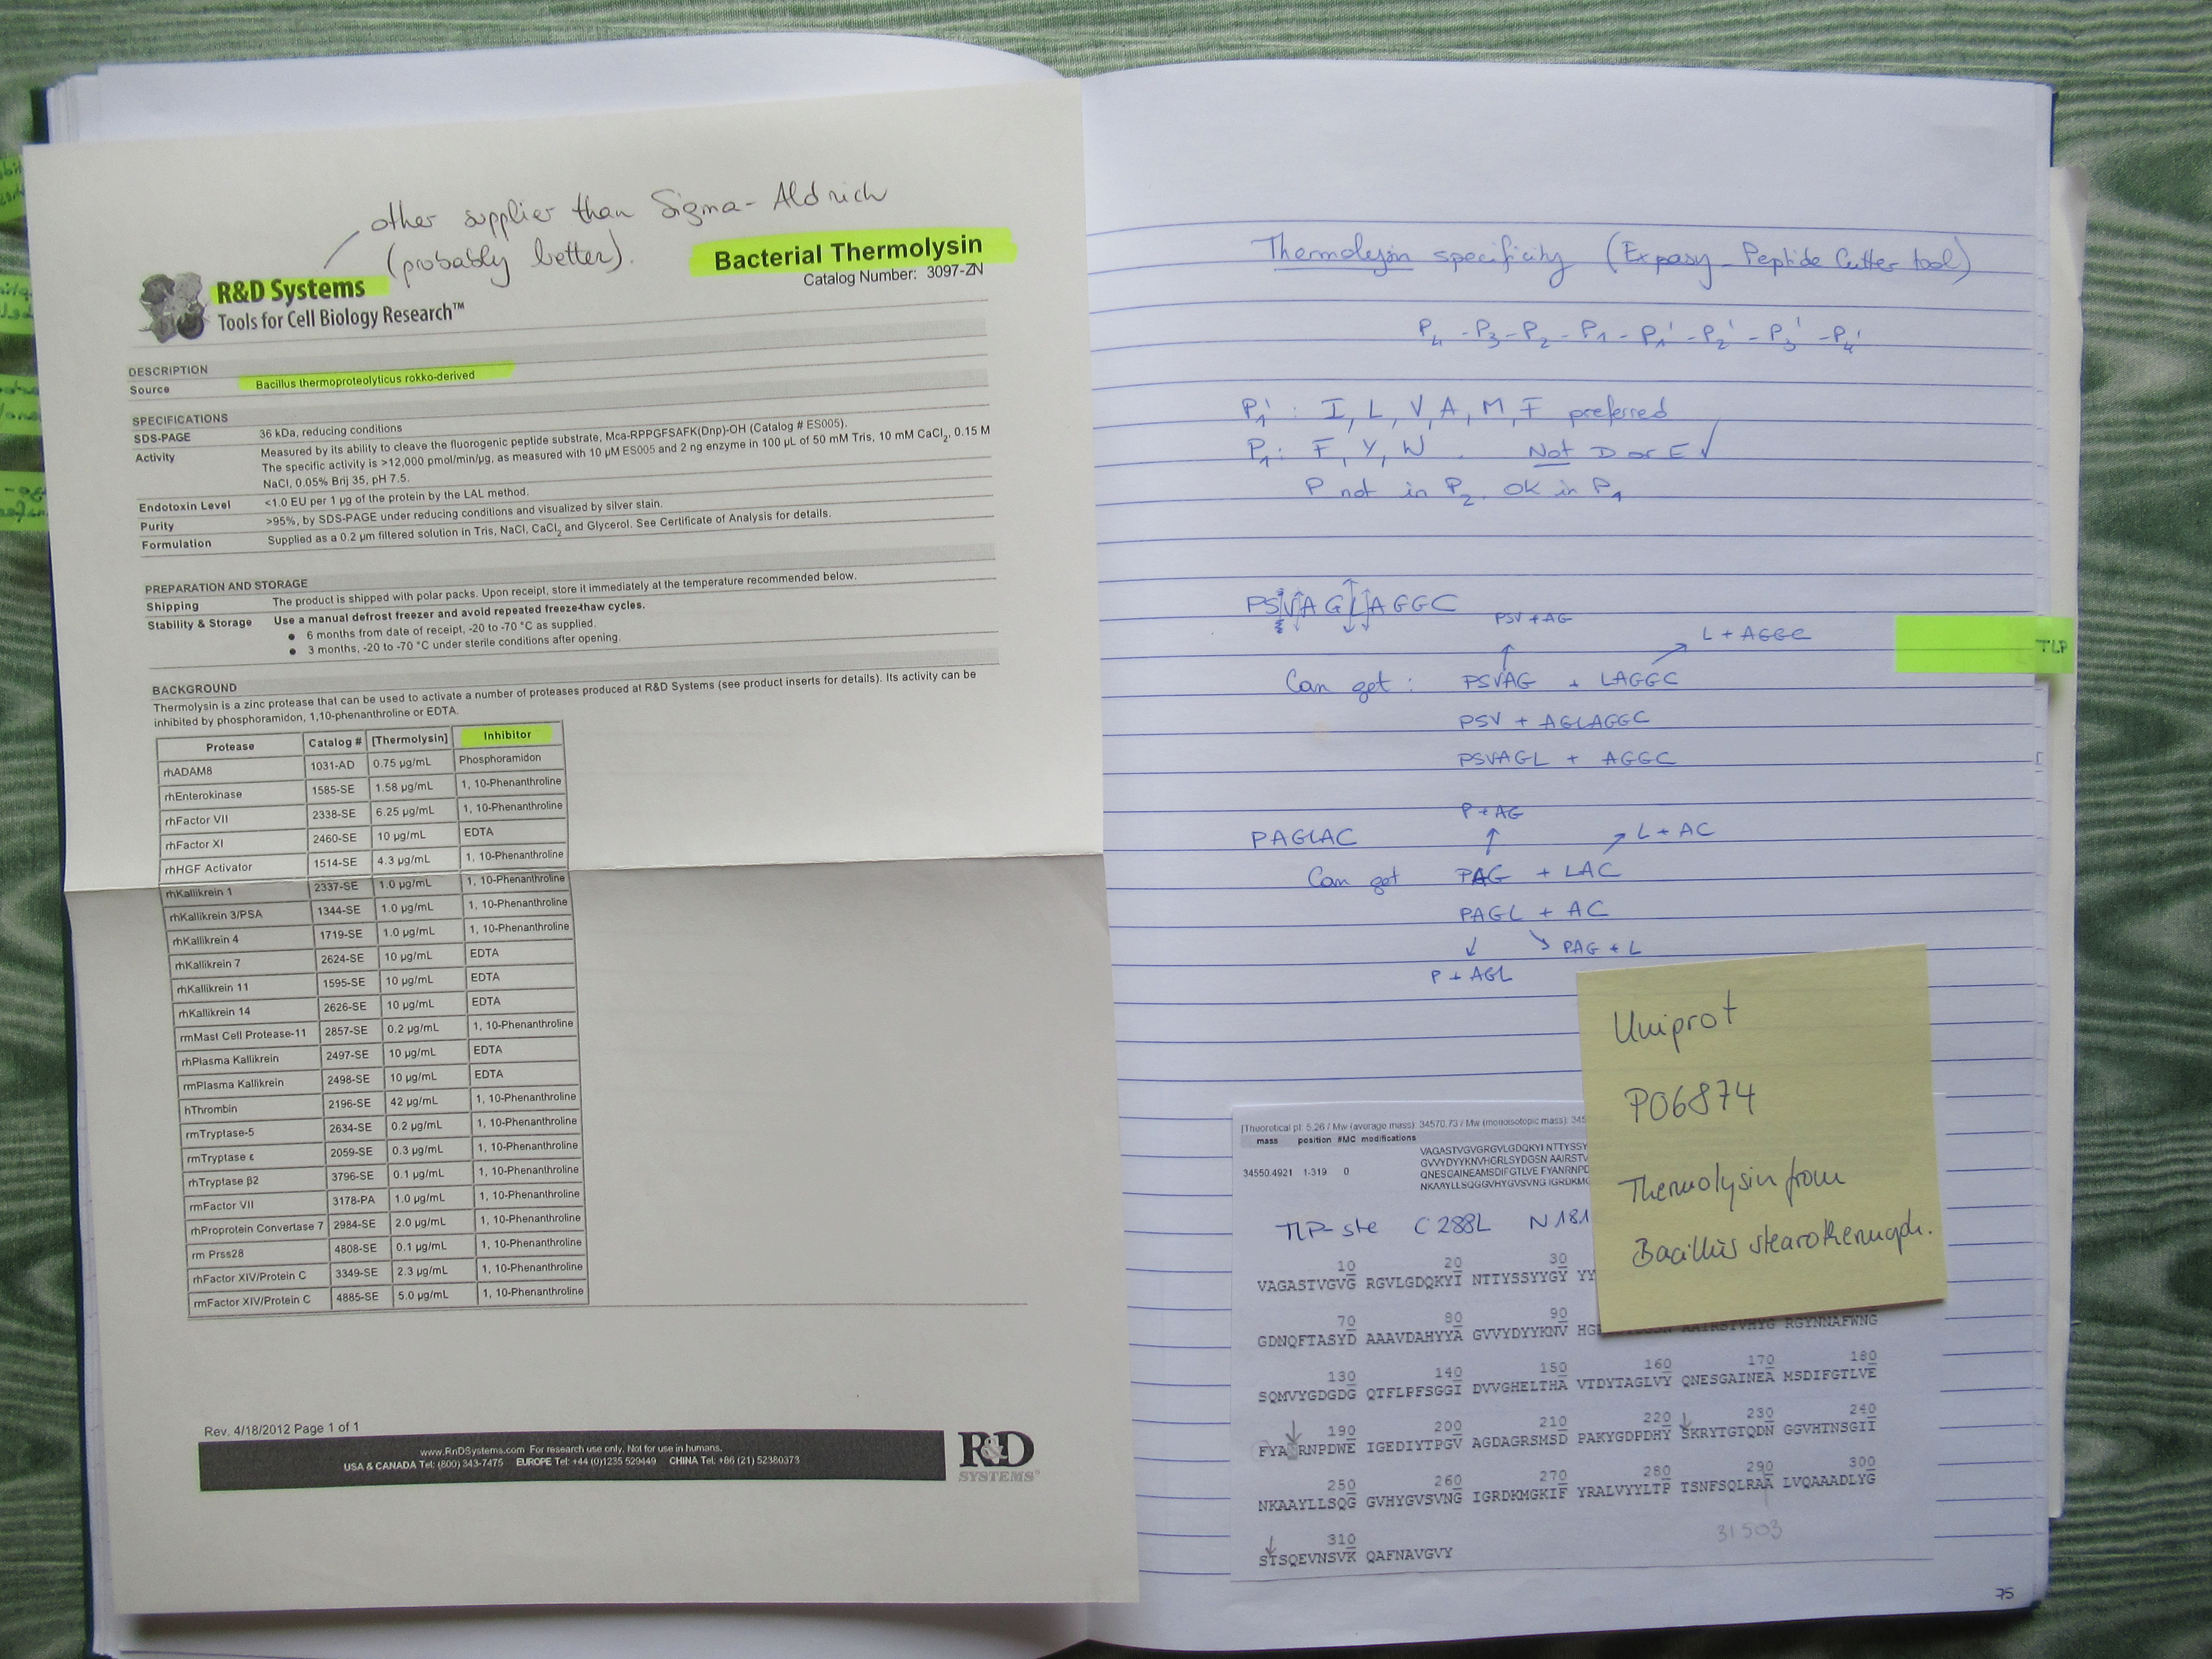 other supplier than Sigma-Aldrich
(probably better).
Bacterial Thermolysin
Catalog Number: 3097-ZN
R&D Systems
Tools for Cell Biology Research™
DESCRIPTION
Source Bacillus thermoproteolyticus rokko-derived
SPECIFICATIONS
SDS-PAGE 36 kDa, reducing conditions
Activity Measured by its ability to cleave the fluorogenic peptide substrate, Mca-RPPGFSAFK(Dnp)-OH (Catalog # ES005).
The specific activity is >12,000 pmol/min/µg, as measured with 10 µM ES005 and 2 ng enzyme in 100 µL of 50 mM Tris, 10 mM CaCl2, 0.15 M
NaCl, 0.05% Brij 35, pH 7.5.
Endotoxin Level <1.0 EU per 1 µg of the protein by the LAL method.
Purity >95%, by SDS-PAGE under reducing conditions and visualized by silver stain.
Formulation Supplied as a 0.2 µm filtered solution in Tris, NaCl, CaCl2 and Glycerol. See Certificate of Analysis for details.
PREPARATION AND STORAGE
Shipping The product is shipped with polar packs. Upon receipt, store it immediately at the temperature recommended below.
Stability & Storage Use a manual defrost freezer and avoid repeated freeze-thaw cycles.
● 6 months from date of receipt, -20 to -70 °C as supplied.
● 3 months, -20 to -70 °C under sterile conditions after opening.
BACKGROUND
Thermolysin is a zinc protease that can be used to activate a number of proteases produced at R&D Systems (see product inserts for details). Its activity can be
inhibited by phosphoramidon, 1,10-phenanthroline or EDTA.
Protease Catalog # [Thermolysin] Inhibitor
rhADAM8 1031-AD 0.75 µg/mL Phosphoramidon
rhEnterokinase 1585-SE 1.58 µg/mL 1, 10-Phenanthroline
rhFactor VII 2338-SE 6.25 µg/mL 1, 10-Phenanthroline
rhFactor XI 2460-SE 10 µg/mL EDTA
rhHGF Activator 1514-SE 4.3 µg/mL 1, 10-Phenanthroline
rhKallikrein 1 2337-SE 1.0 µg/mL 1, 10-Phenanthroline
rhKallikrein 3/PSA 1344-SE 1.0 µg/mL 1, 10-Phenanthroline
rhKallikrein 4 1719-SE 1.0 µg/mL 1, 10-Phenanthroline
rhKallikrein 7 2624-SE 10 µg/mL EDTA
rhKallikrein 11 1595-SE 10 µg/mL EDTA
rhKallikrein 14 2626-SE 10 µg/mL EDTA
rmMast Cell Protease-11 2857-SE 0.2 µg/mL 1, 10-Phenanthroline
rhPlasma Kallikrein 2497-SE 10 µg/mL EDTA
rmPlasma Kallikrein 2498-SE 10 µg/mL EDTA
hThrombin 2196-SE 42 µg/mL 1, 10-Phenanthroline
rmTryptase-5 2634-SE 0.2 µg/mL 1, 10-Phenanthroline
rmTryptase ε 2059-SE 0.3 µg/mL 1, 10-Phenanthroline
rhTryptase β2 3796-SE 0.1 µg/mL 1, 10-Phenanthroline
rmFactor VII 3178-PA 1.0 µg/mL 1, 10-Phenanthroline
rhProprotein Convertase 7 2984-SE 2.0 µg/mL 1, 10-Phenanthroline
rm Prss28 4808-SE 0.1 µg/mL 1, 10-Phenanthroline
rhFactor XIV/Protein C 3349-SE 2.3 µg/mL 1, 10-Phenanthroline
rmFactor XIV/Protein C 4885-SE 5.0 µg/mL 1, 10-Phenanthroline
Rev. 4/18/2012 Page 1 of 1
www.RnDSystems.com For research use only. Not for use in humans.
USA & CANADA Tel: (800) 343-7475 EUROPE Tel: +44 (0)1235 529449 CHINA Tel: +86 (21) 52380373
R&D
SYSTEMS
Thermolysin specificity (Expasy-Peptide Cutter tool)
P4 - P3 - P2 - P1 - P1' - P2' - P3' - P4'
P1' : I, L, V, A, M, F preferred
P1 : F, Y, W. Not D or E ✓
P not in P2. OK in P1
PSVAGLAGGC
PSV + AG
L + AGGC
Can get : PSVAG + LAGGC
PSV + AGLAGGC
PSVAGL + AGGC
P + AG
PAGLAC
L + AC
Can get PAG + LAC
PAGL + AC
PAG + L
P + AGL
TLP
Uniprot
P06874
Thermolysin from
Bacillus stearothermoph.
[Theoretical pI: 5.26 / Mw (average mass): 34570.73 / Mw (monoisotopic mass): 345
mass position #MC modifications
VAGASTVGVGRGVLGDQKYI NTTYSSY
GVVYDYYKNVHGRLSYDGSN AAIRSTV
34550.4921 1-319 0
QNESGAINEAMSDIFGTLVE FYANRNPD
NKAAYLLSQGGVHYGVSVNG IGRDKMG
TLP-ste C288L N181
10 20 30
VAGASTVGVG RGVLGDQKYI NTTYSSYYGY YY
70 80 90
GDNQFTASYD AAAVDAHYYA GVVYDYYKNV HG RGYNNAFWNG
130 140 150 160 170 180
SQMVYGDGDG QTFLPFSGGI DVVGHELTHA VTDYTAGLVY QNESGAINEA MSDIFGTLVE
190 200 210 220 230 240
FYA RNPDWE IGEDIYTPGV AGDAGRSMSD PAKYGDPDHY SKRYTGTQDN GGVHTNSGII
250 260 270 280 290 300
NKAAYLLSQG GVHYGVSVNG IGRDKMGKIF YRALVYYLTP TSNFSQLRAA LVQAAADLYG
310
STSQEVNSVK QAFNAVGVY
31503
75